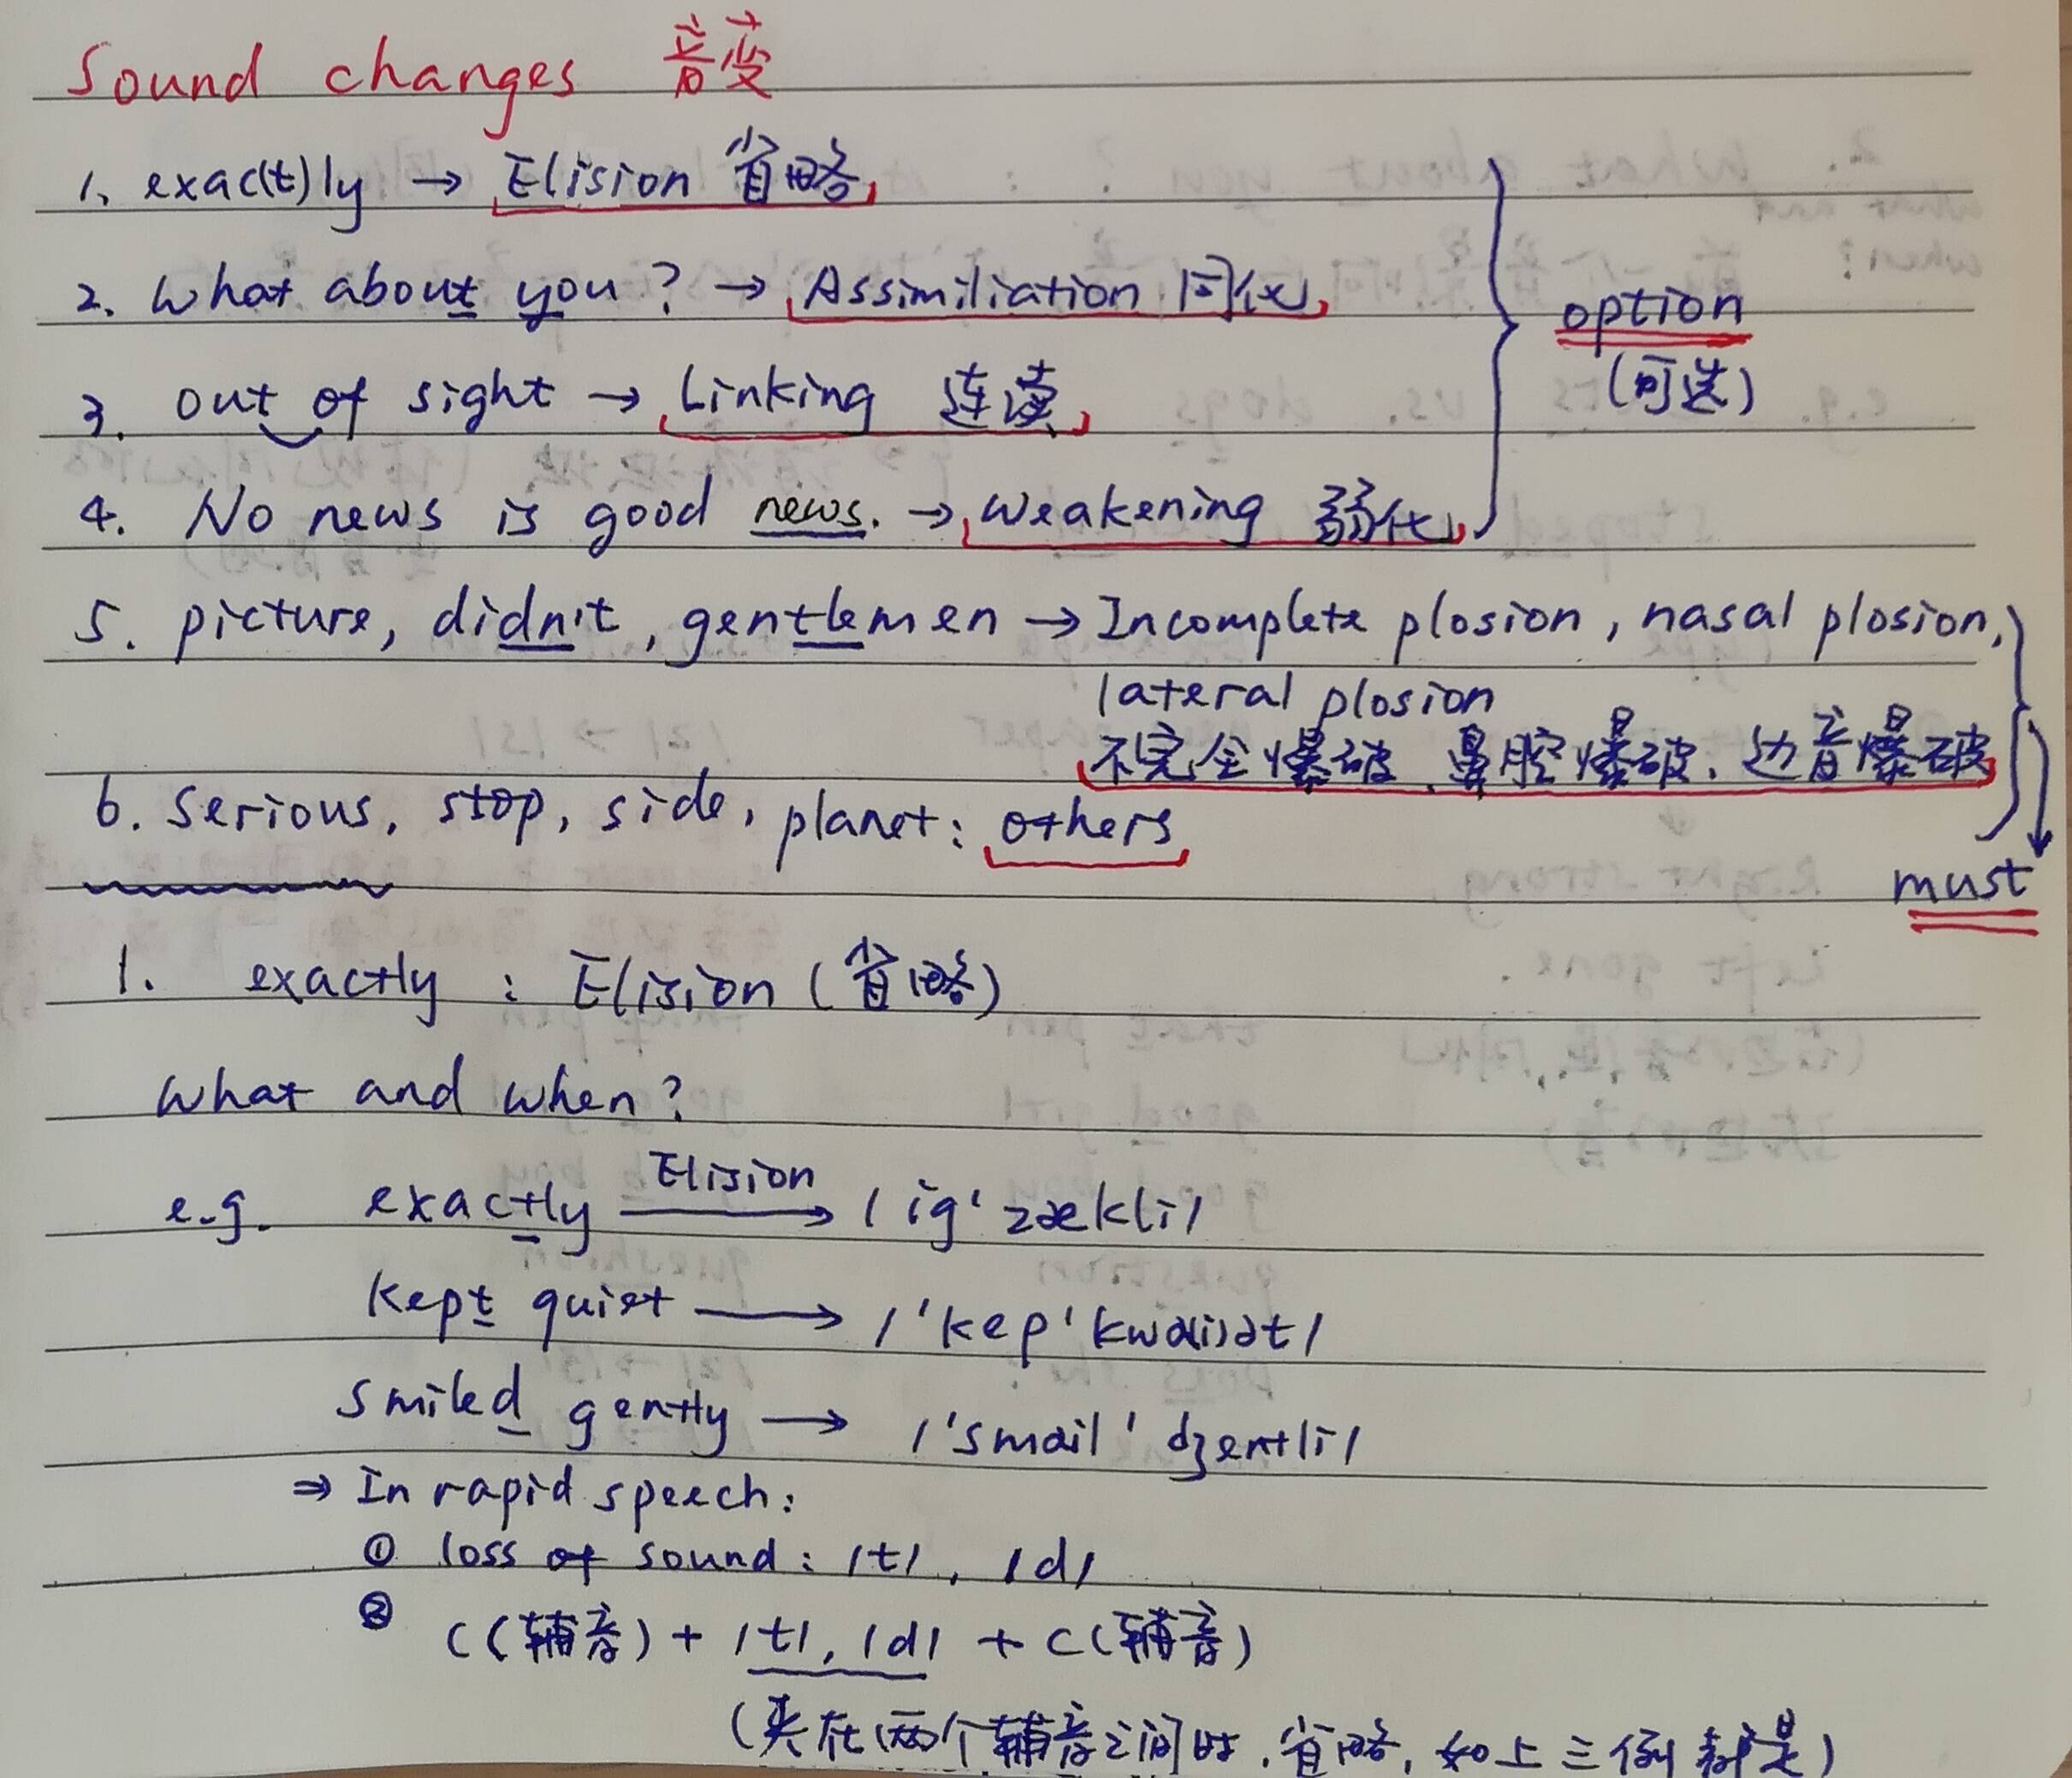 Sound changes 音变
1. exac(t)ly → Elision 省略
2. What about you? → Assimiliation 同化
option
(可选)
3. out of sight → Linking 连读
4. No news is good news. → Weakening 弱化
5. picture, didn't, gentlemen → Incomplete plosion, nasal plosion,
lateral plosion
不完全爆破、鼻腔爆破、边音爆破
6. serious, stop, side, planet: others
must
1. exactly : Elision (省略)
What and when?
e.g. exactly Elision → /ig'zækli/
kept quiet → /'kep'kwa(i)ət/
smiled gently → /'smail'dʒentli/
⇒ In rapid speech:
① loss of sound: /t/, /d/
② C(辅音) + /t/, /d/ + C(辅音)
(夹在两个辅音之间时,省略,如上三例都是)